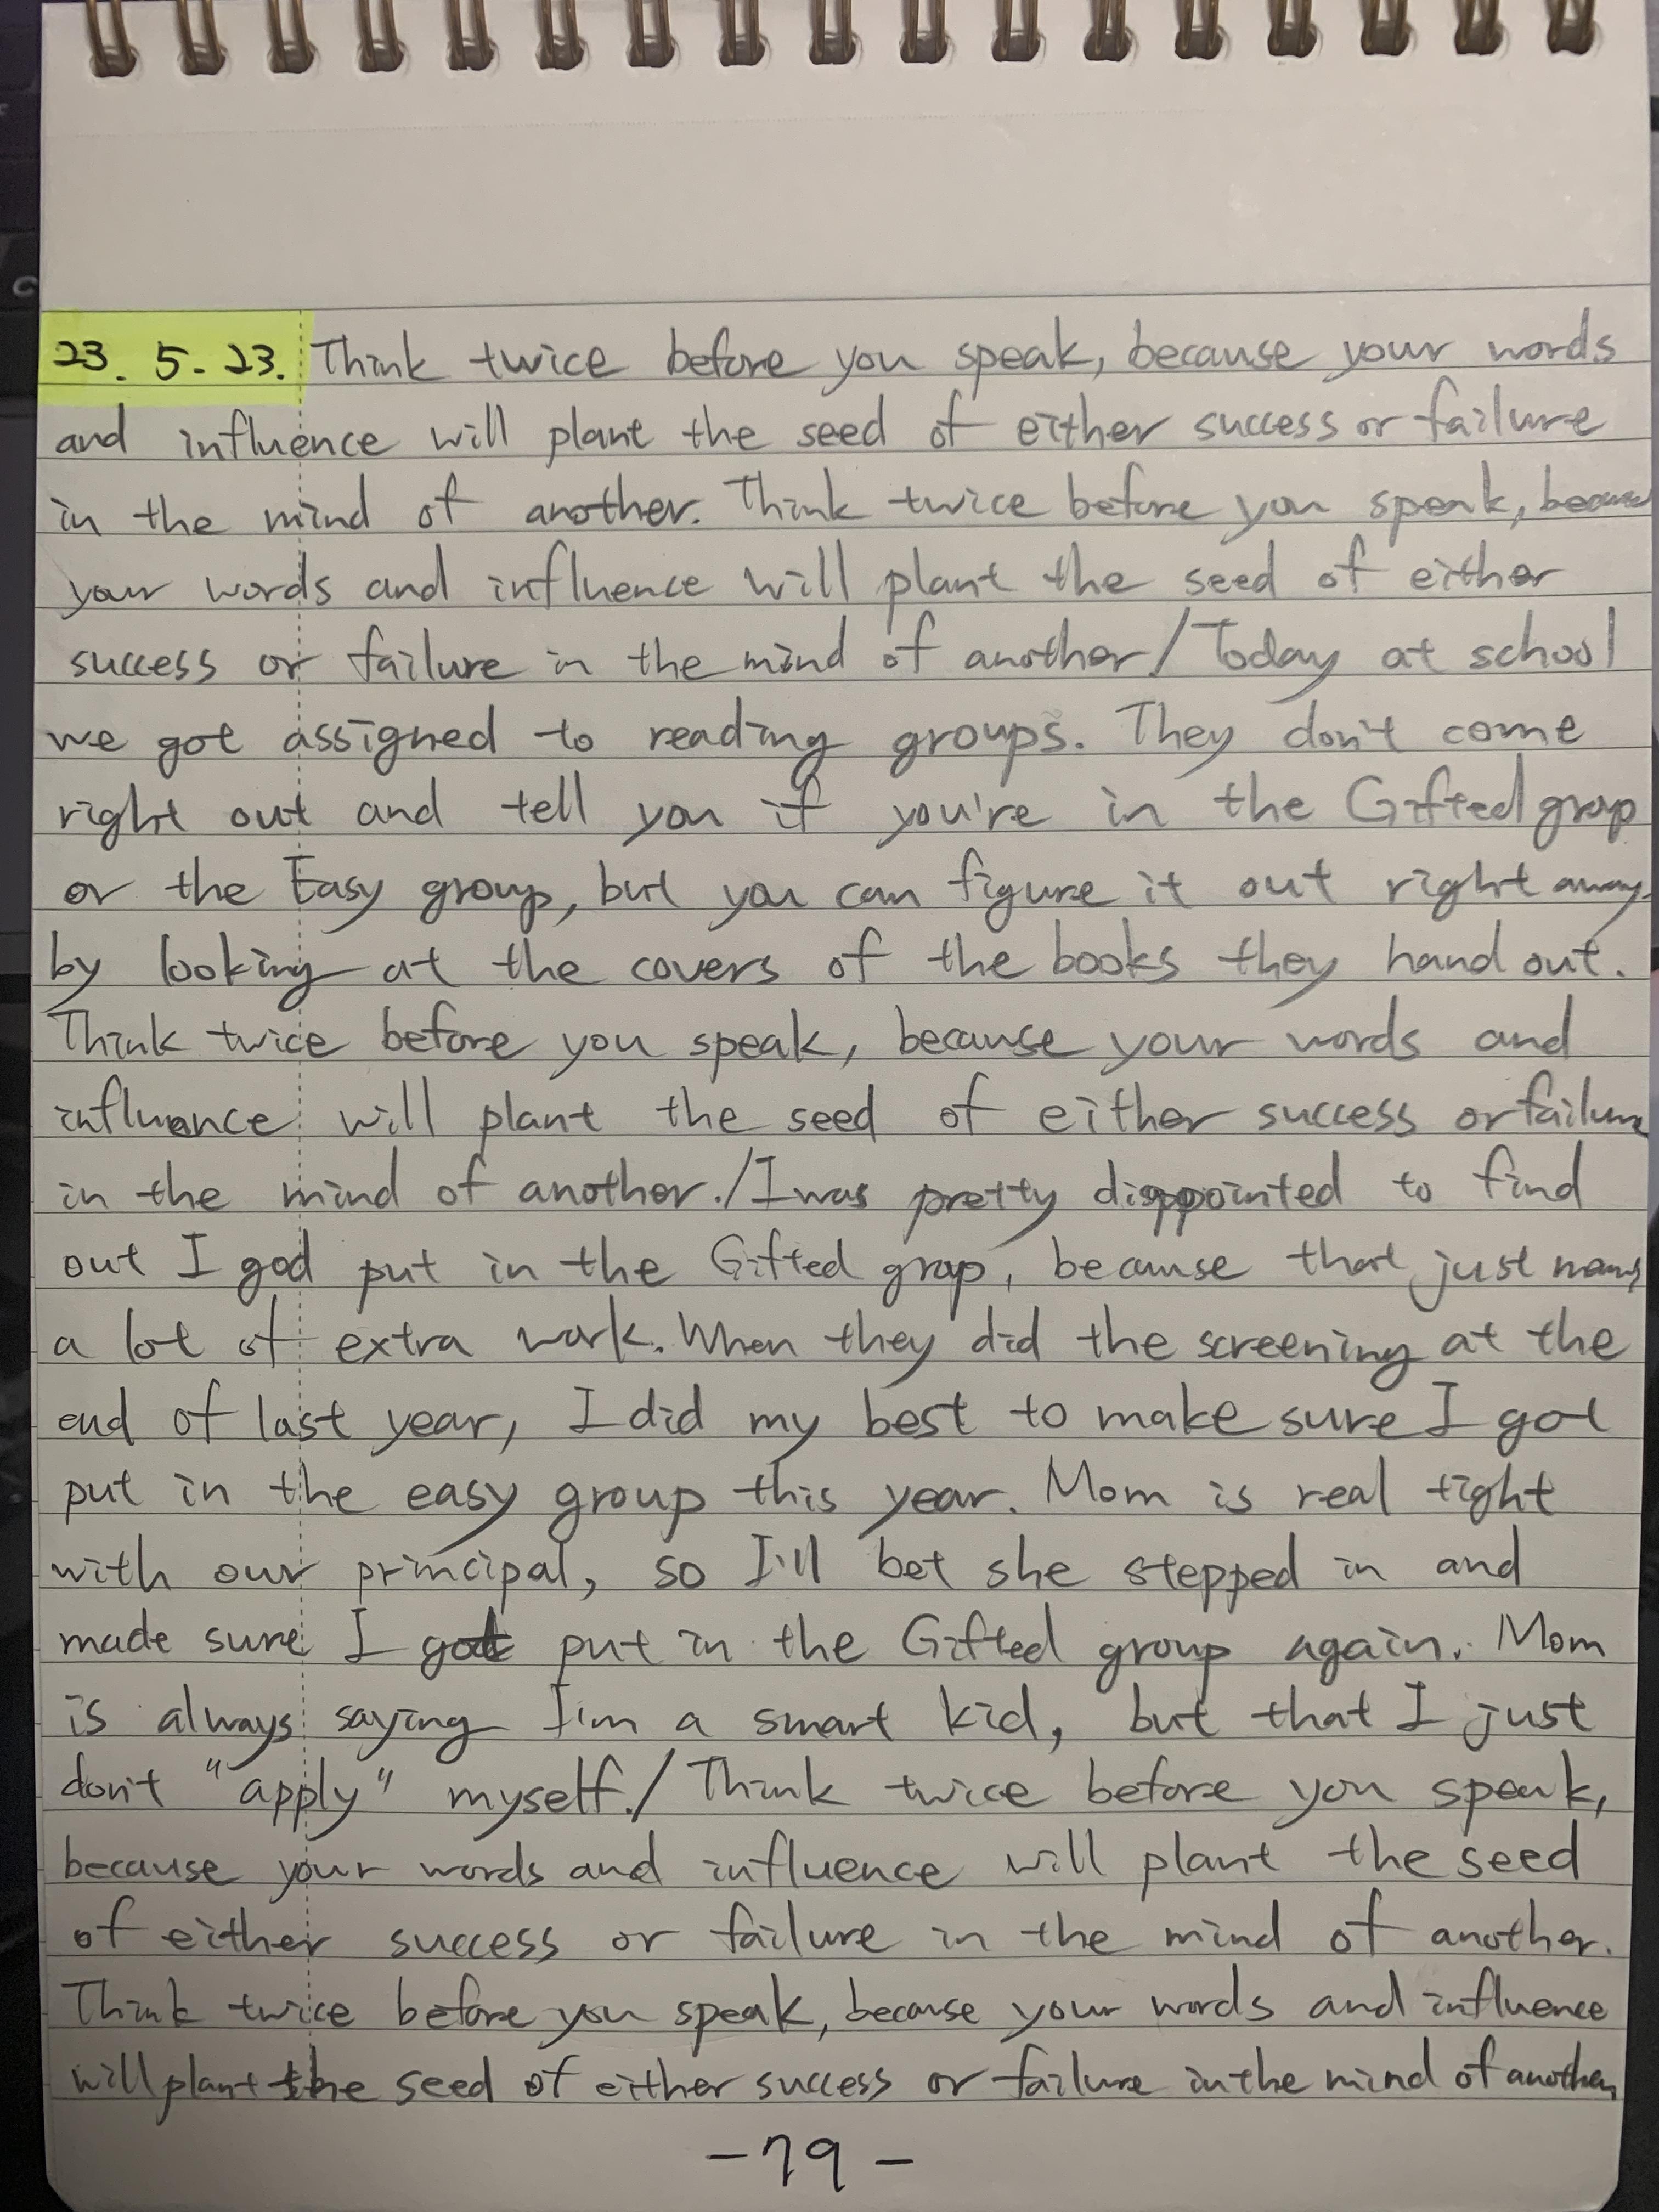 23. 5. 23. Think twice before you speak, because your words
and influence will plant the seed of either success or failure
in the mind of another. Think twice before you speak, because
your words and influence will plant the seed of either
success or failure in the mind of another./Today at school
we got assigned to reading groups. They don't come
right out and tell you if you're in the Gifted group
or the Easy group, but you can figure it out right away
by looking at the covers of the books they hand out.
Think twice before you speak, because your words and
influence will plant the seed of either success or failure
in the mind of another./I was pretty disappointed to find
out I god put in the Gifted grop, because that just means
a lot of extra work. When they did the screening at the
end of last year, I did my best to make sure I got
put in the easy group this year. Mom is real tight
with our principal, so I'll bet she stepped in and
made sure I got put in the Gifted group again. Mom
is always saying I'm a smart kid, but that I just
don't "apply" myself./Think twice before you speak,
because your words and influence will plant the seed
of either success or failure in the mind of another.
Think twice before you speak, because your words and influence
will plant the seed of either success or failure in the mind of another,
-79-